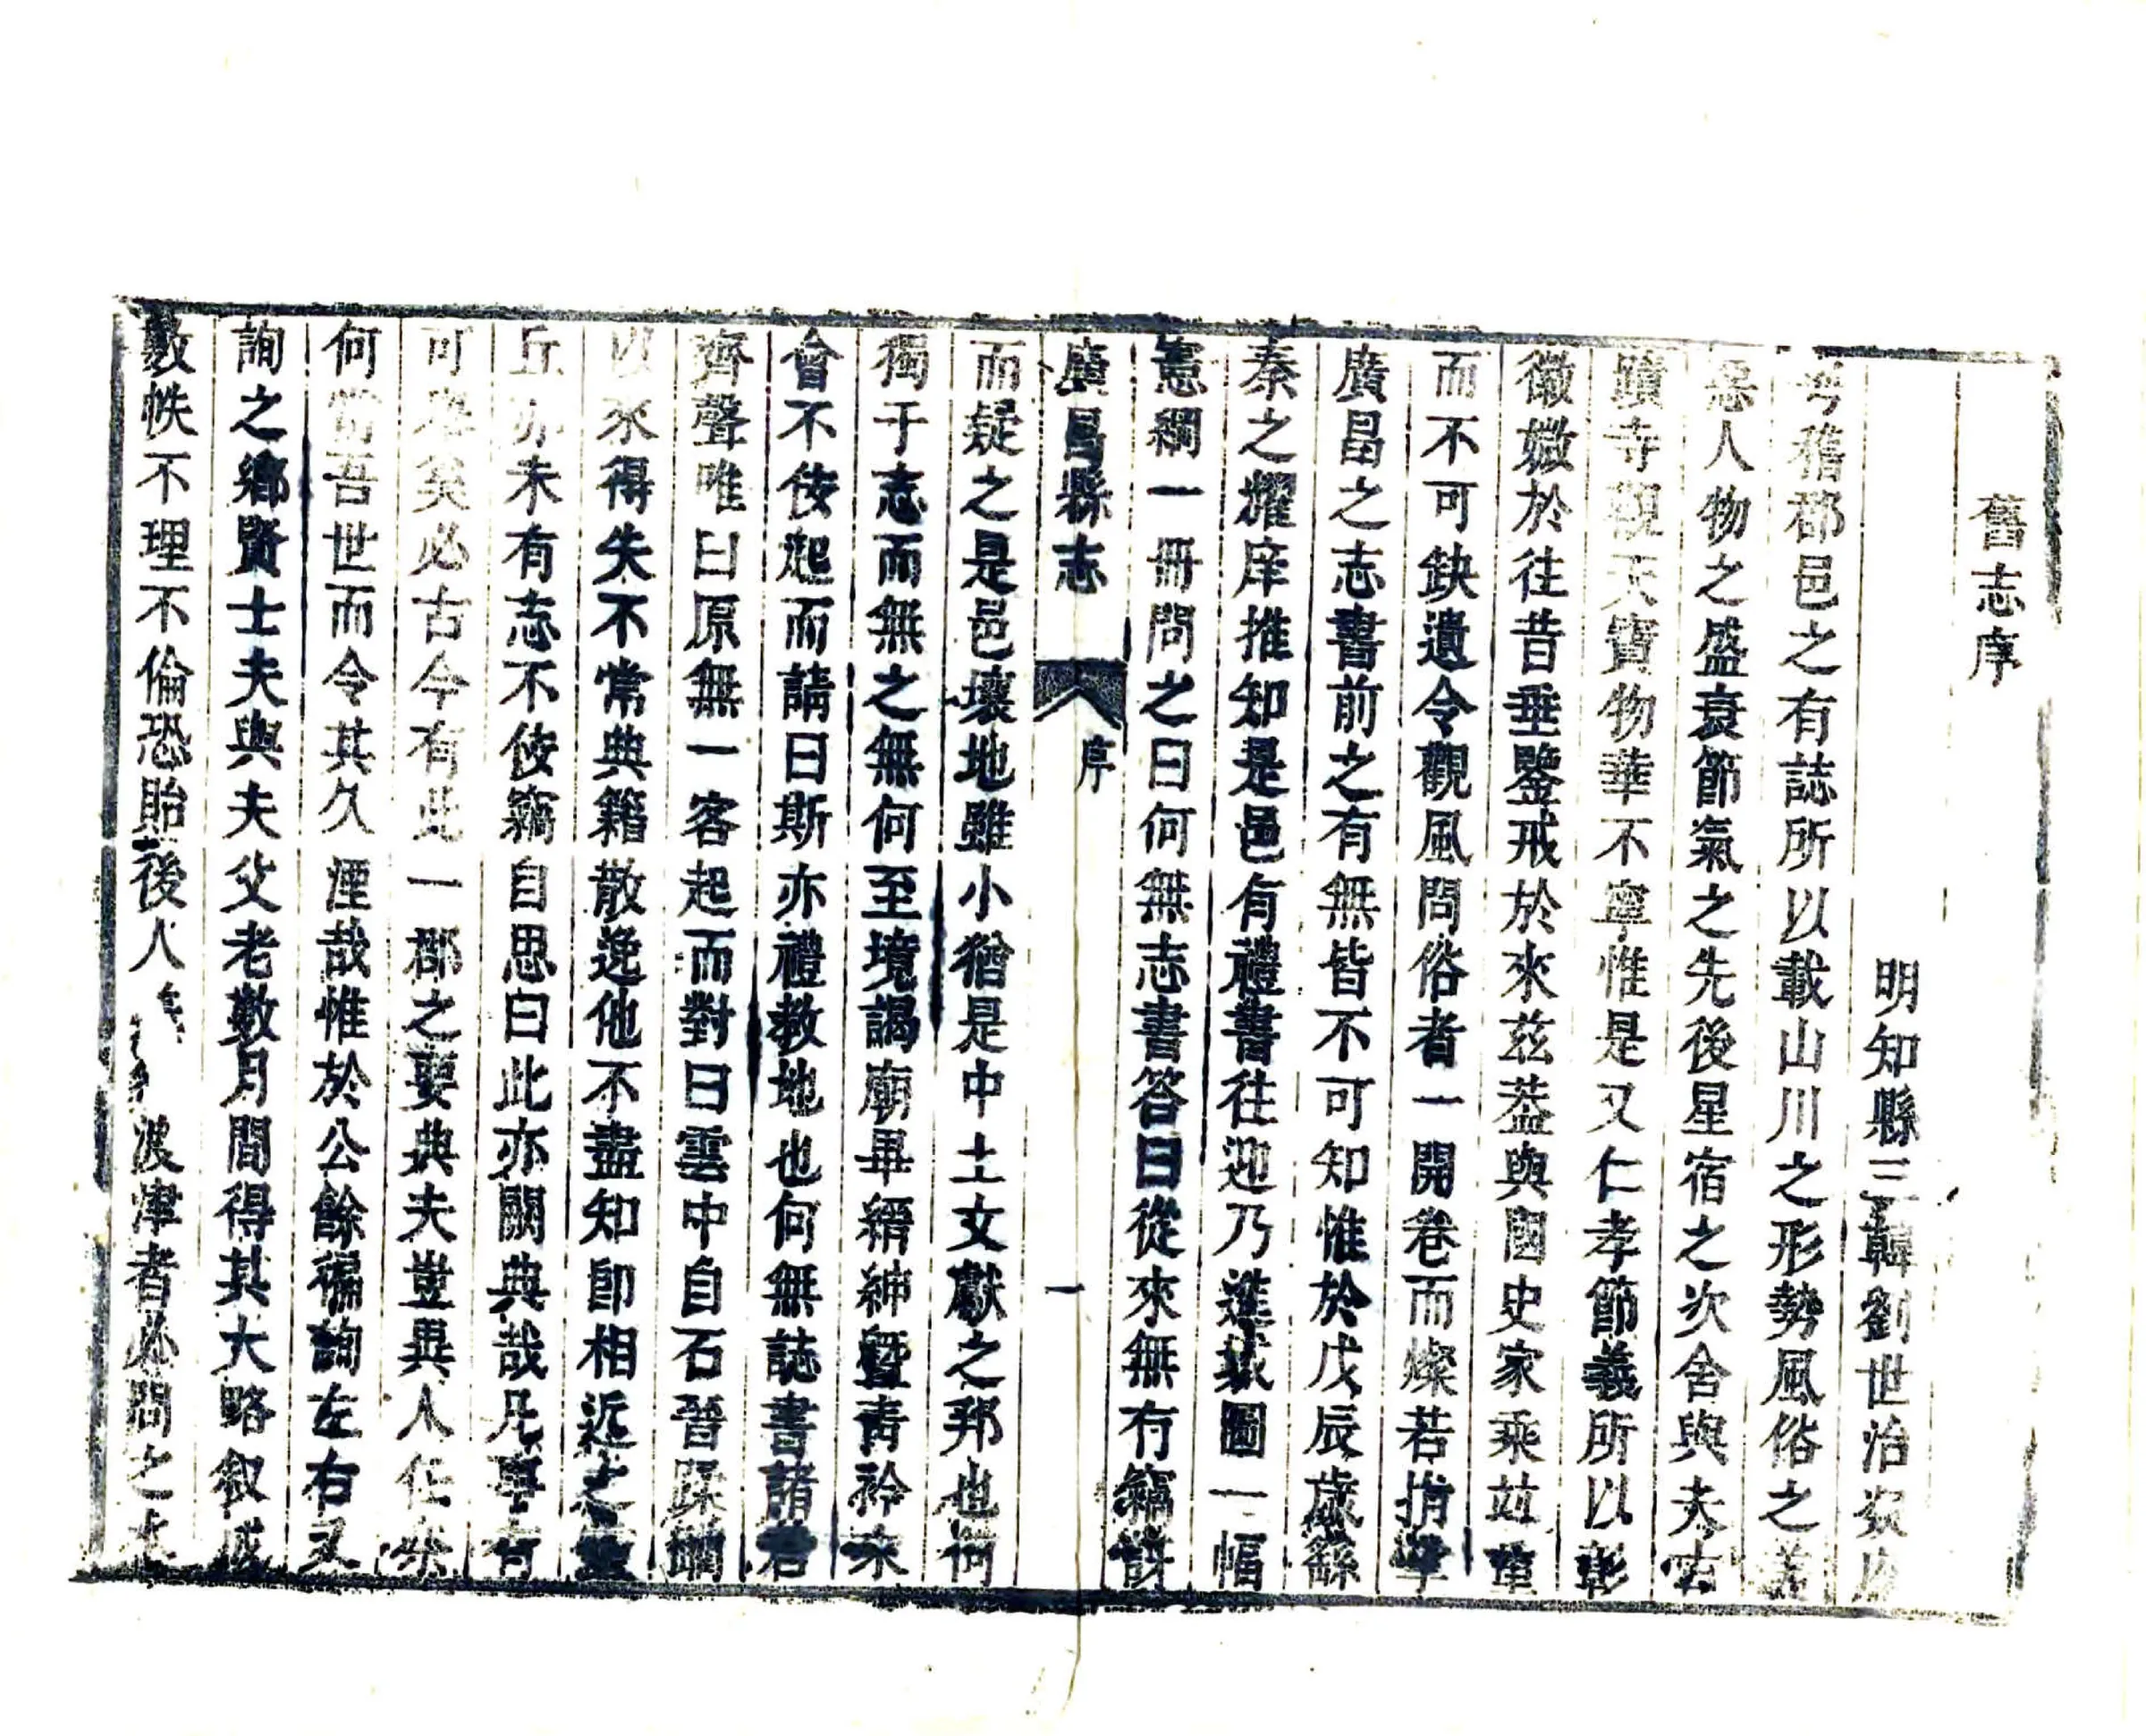 舊志序
明知縣三韓劉世治
舊郡邑之有誌所以載山川之形勢風俗之美
惡人物之盛衰節氣之先後星宿之次舍與夫古
蹟寺觀天寶物華不寧惟是又仁孝節義所以彰
徽媺於往昔垂鑒戒於來茲葢與國史家乘竝重
而不可缺遺令觀風問俗者一開卷而燦若指掌
廣昌之志書前之有無皆不可知惟於戊辰歲繇
秦之耀庠推知是邑有禮書往迎乃進城圖一幅
憲綱一冊問之曰何無志書答曰從來無有竊訝
廣昌縣志 序 一
而疑之是邑壤地雖小猶是中土文獻之邦也何
獨于志而無之無何至境謁廟畢縉紳曁靑衿來
會不佞起而請曰斯亦禮教地也何無誌書諸君
齊聲唯曰原無一客起而對曰雲中自石晉蹂躪
以來得失不常典籍散逸他不盡知卽相近之靈
丘亦未有志不佞竊自思曰此亦闕典哉凡事有
可爲矣必古今有此一郡之要典夫豈異人任矣
何當吾世而令其久湮哉惟於公餘徧詢左右又
詢之鄉賢士夫與夫父老數月間得其大略叙成
數帙不理不倫恐貽後人 波津者必問之